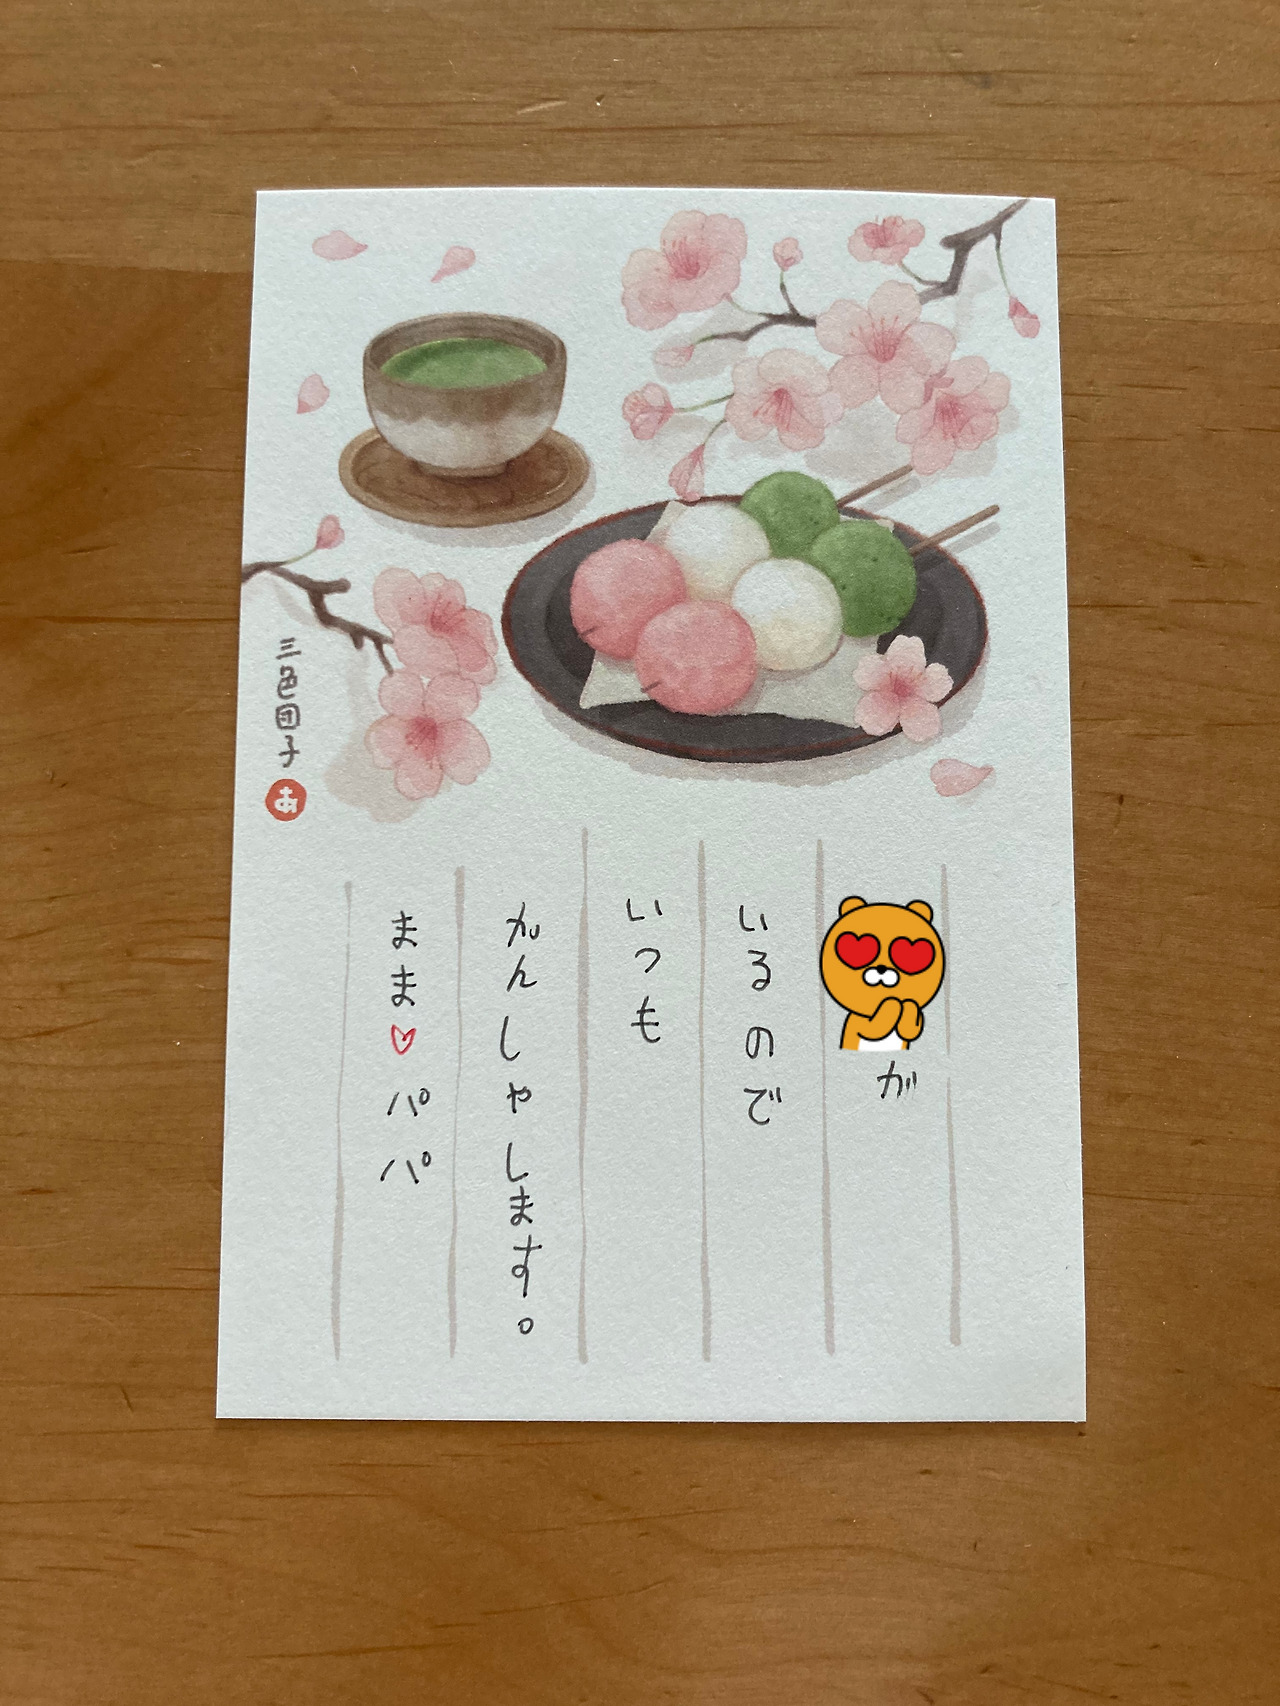 が
いるので
いつも
かんしゃします。
まま♡パパ
三色団子
あ